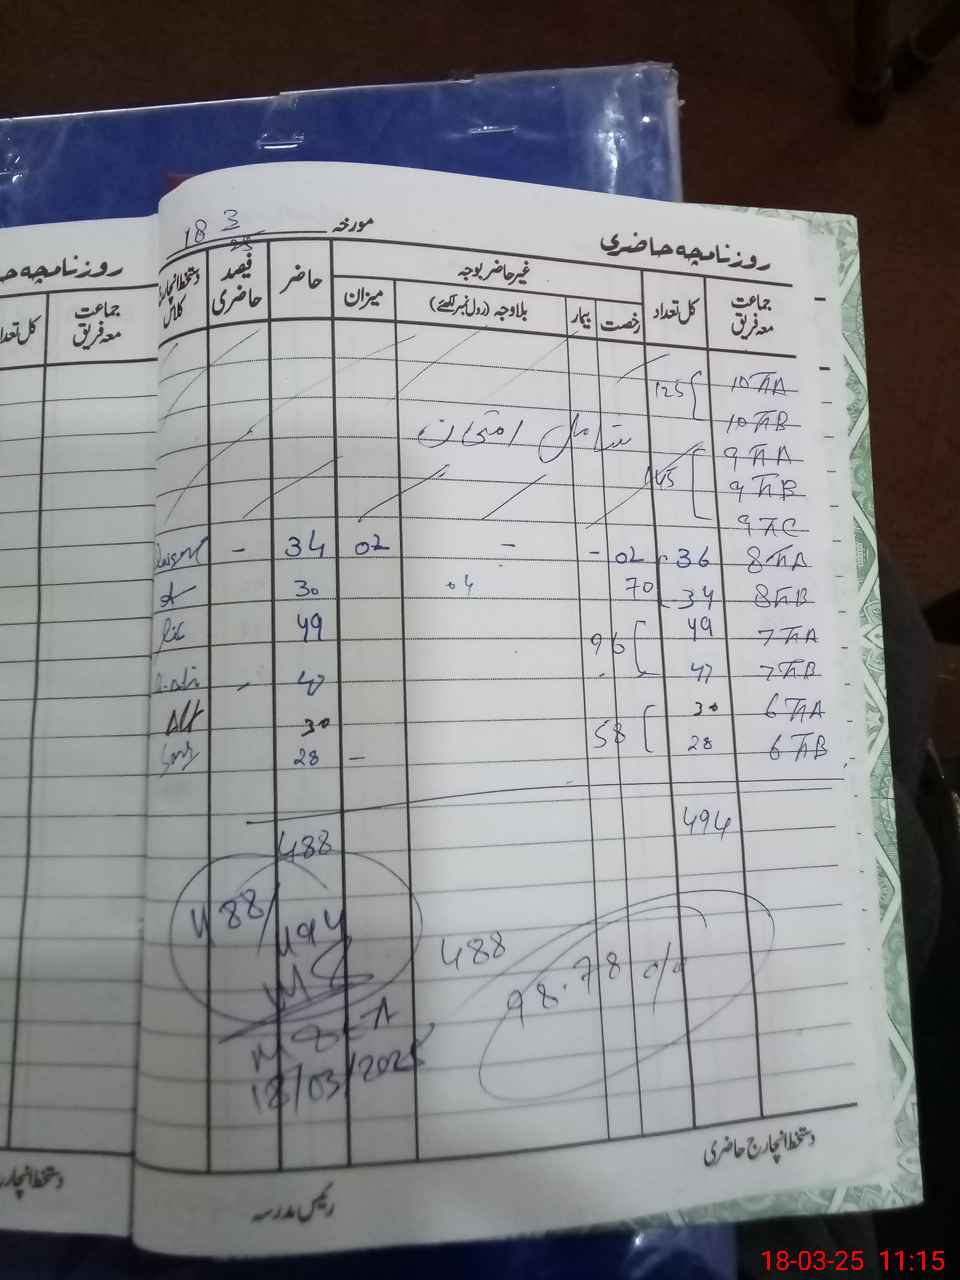 روزنامچہ حاضری
مورخہ 18 3 25
جماعت معہ فریق
کل تعداد
غیر حاضر بوجہ
رخصت
بیمار
بلاوجہ (رول نمبر لکھئے)
میزان
حاضر
فیصد حاضری
دستخط انچارج کلاس
10th A 125
10th B
شامل امتحان
9th A
9th B 145
9th C
8th A 36 02 - - 02 34 -
8th B 34 70 04 30
7th A 49 96 49
7th B 47 47
6th A 30 58 30
6th B 28 - 28
494
488
488/494
488
98.78 %
MEA
18/03/2025
دستخط انچارج حاضری
رئیس مدرسہ
روزنامچہ حا
جماعت معہ فریق
کل تعدا
دستخط انچار
18-03-25 11:15